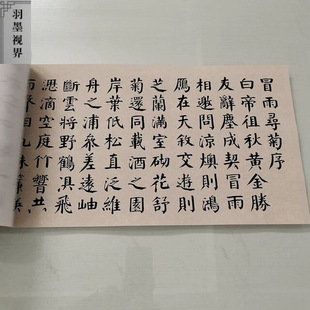 羽墨视界
冒雨尋菊序
白帝徂秋黄金勝
友辭塵成契冒雨
相邀問涼燠則鴻
鴈在天敘交遊則
芝蘭滿室砌花舒
菊還同載酒之園
岸葉低松直泛維
舟之浦參差遠岫
斷雲將野鶴俱飛
滴空庭竹響共